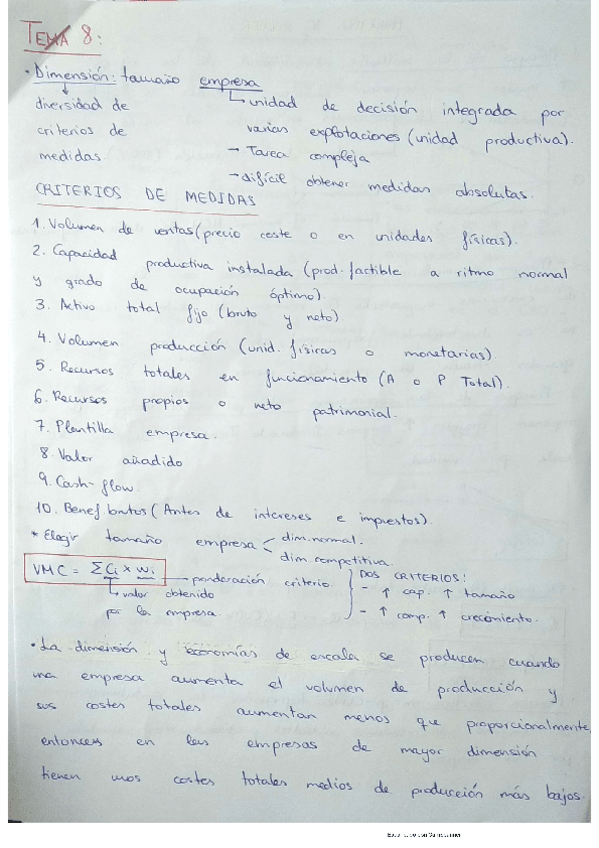 TEMA 8:
• Dimensión: tamaño empresa
diversidad de
criterios de
medidas
unidad de decisión integrada por
varias explotaciones (unidad productiva).
→ Tarea compleja
→ difícil obtener medidas absolutas.
CRITERIOS DE MEDIDAS
1. Volumen de ventas (precio coste o en unidades físicas).
2. Capacidad productiva instalada (prod. factible a ritmo normal
y grado de ocupación óptimo).
3. Activo total fijo (bruto y neto)
4. Volumen producción (unid. físicas o monetarias)
5. Recursos totales en funcionamiento (A o P Total).
6. Recursos propios o neto patrimonial.
7. Plantilla empresa.
8. Valor añadido
9. Cash-flow.
10. Benef brutos (Antes de intereses e impuestos).
* Elegir tamaño empresa < dim. normal.
dim. competitiva.
VMC = ΣCi x wi → ponderación criterio
↳ valor obtenido
por la empresa.
DOS CRITERIOS:
- ↑ cap. ↑ tamaño
- ↑ comp. ↑ crecimiento.
• La dimensión y economías de escala se producen cuando
una empresa aumenta el volumen de producción y
sus costes totales aumentan menos que proporcionalmente,
entonces en las empresas de mayor dimensión
tienen unos costes totales medios de producción más bajos.